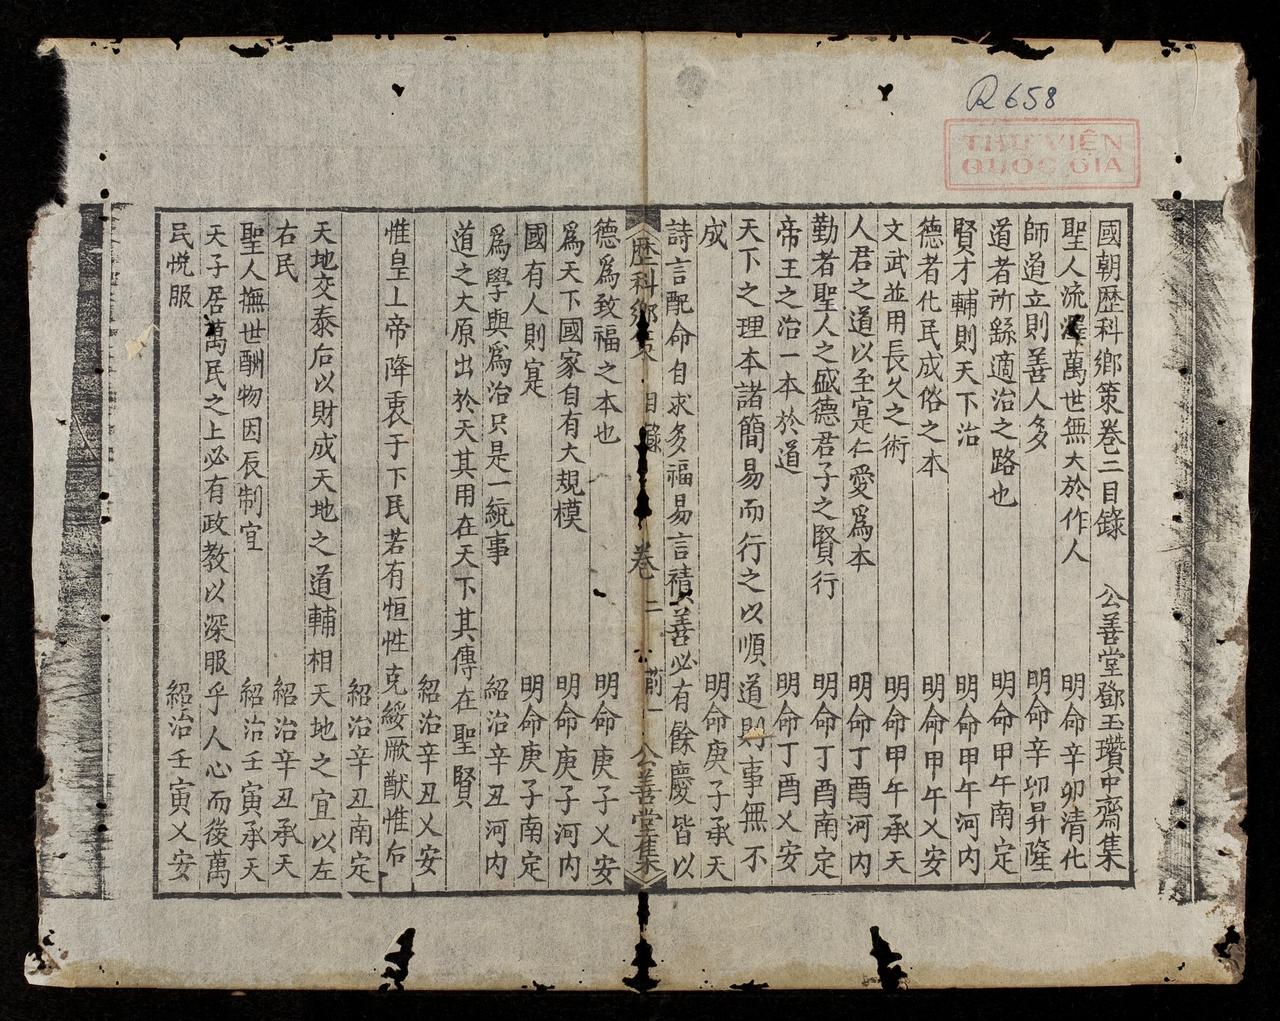 R658
THƯ VIỆN
QUỐC GIA
國朝歷科鄉策卷二目錄 公善堂鄧玉瓚中齋集
聖人流澤萬世無大於作人 明命辛卯清化
師道立則善人多 明命辛卯昇隆
道者所繇適治之路也 明命甲午南定
賢才輔則天下治 明命甲午河内
德者化民成俗之本 明命甲午乂安
文武並用長久之術 明命甲午承天
人君之道以至寔仁愛爲本 明命丁酉河内
勤者聖人之盛德君子之賢行 明命丁酉南定
帝王之治一本於道 明命丁酉乂安
天下之理本諸簡易而行之以順道則事無不
成 明命庚子承天
詩言配命自求多福易言積善必有餘慶皆以
歷科鄉策 目錄 卷二 前一 公善堂集
德爲致福之本也 明命庚子乂安
爲天下國家自有大規模 明命庚子河内
國有人則寔 明命庚子南定
爲學與爲治只是一統事 紹治辛丑河内
道之大原出於天其用在天下其傳在聖賢
紹治辛丑乂安
惟皇上帝降衷于下民若有恒性克綏厥猷惟后
紹治辛丑南定
天地交泰后以財成天地之道輔相天地之宜以左
右民 紹治辛丑承天
聖人撫世酬物因辰制宜 紹治壬寅承天
天子居萬民之上必有政教以深服乎人心而後萬
民悅服 紹治壬寅乂安